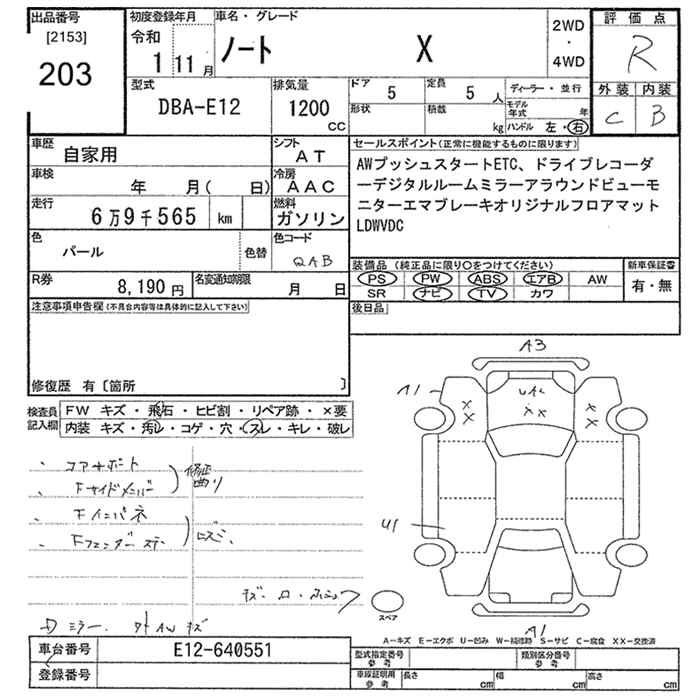 出品番号
[2153]
203
初度登録年月
令和
1 11 月
車名・グレード
ノート X
2WD
・
4WD
評価点
R
外装 内装
C B
型式
DBA-E12
排気量
1200
CC
ドア 5
定員 5 人
形状
積載 kg
ディーラー・並行
モデル年式 年
ハンドル 左・右
車歴 自家用
シフト AT
車検 年 月( 日)
冷房 AAC
走行 6万9千565 km
燃料 ガソリン
色 パール 色替
色コード QAB
R券 8,190円
名変通知期限 月 日
セールスポイント(正常に機能するものに限ります)
AWプッシュスタートETC、ドライブレコーダ
ーデジタルルームミラーアラウンドビューモ
ニターエマブレーキオリジナルフロアマット
LDWVDC
装備品 (純正品に限り○をつけてください)
新車保証書
PS PW ABS エアB AW
SR ナビ TV カワ
有・無
後日品
注意事項申告欄(不具合内容等は具体的に記入して下さい)
修復歴 有〔箇所 〕
検査員記入欄
FW キズ・飛石・ヒビ割・リペア跡・×要
内装 キズ・汚レ・コゲ・穴・スレ・キレ・破レ
、 コアサポート
、 Fサイドメンバー
修正 曲り
、 Fインパネ
、 Fフェンダーステー
A3
A1
×
×
××
×
×
U1
A1
スペア
ミラー 外AWキズ
A-キズ E-エクボ U-凹み W-補修跡 S-サビ C-腐食 XX-交換済
車台番号 E12-640551
登録番号
型式指定番号 参考
類別区分番号 参考
車庫証明用 参考
長さ cm
幅 cm
高さ cm